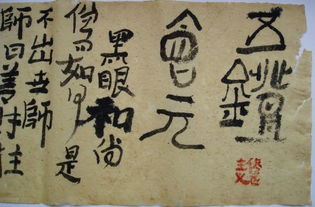 五鐙
會元
黑眼和尚
僧問如何是
不出世師
師曰善財拄